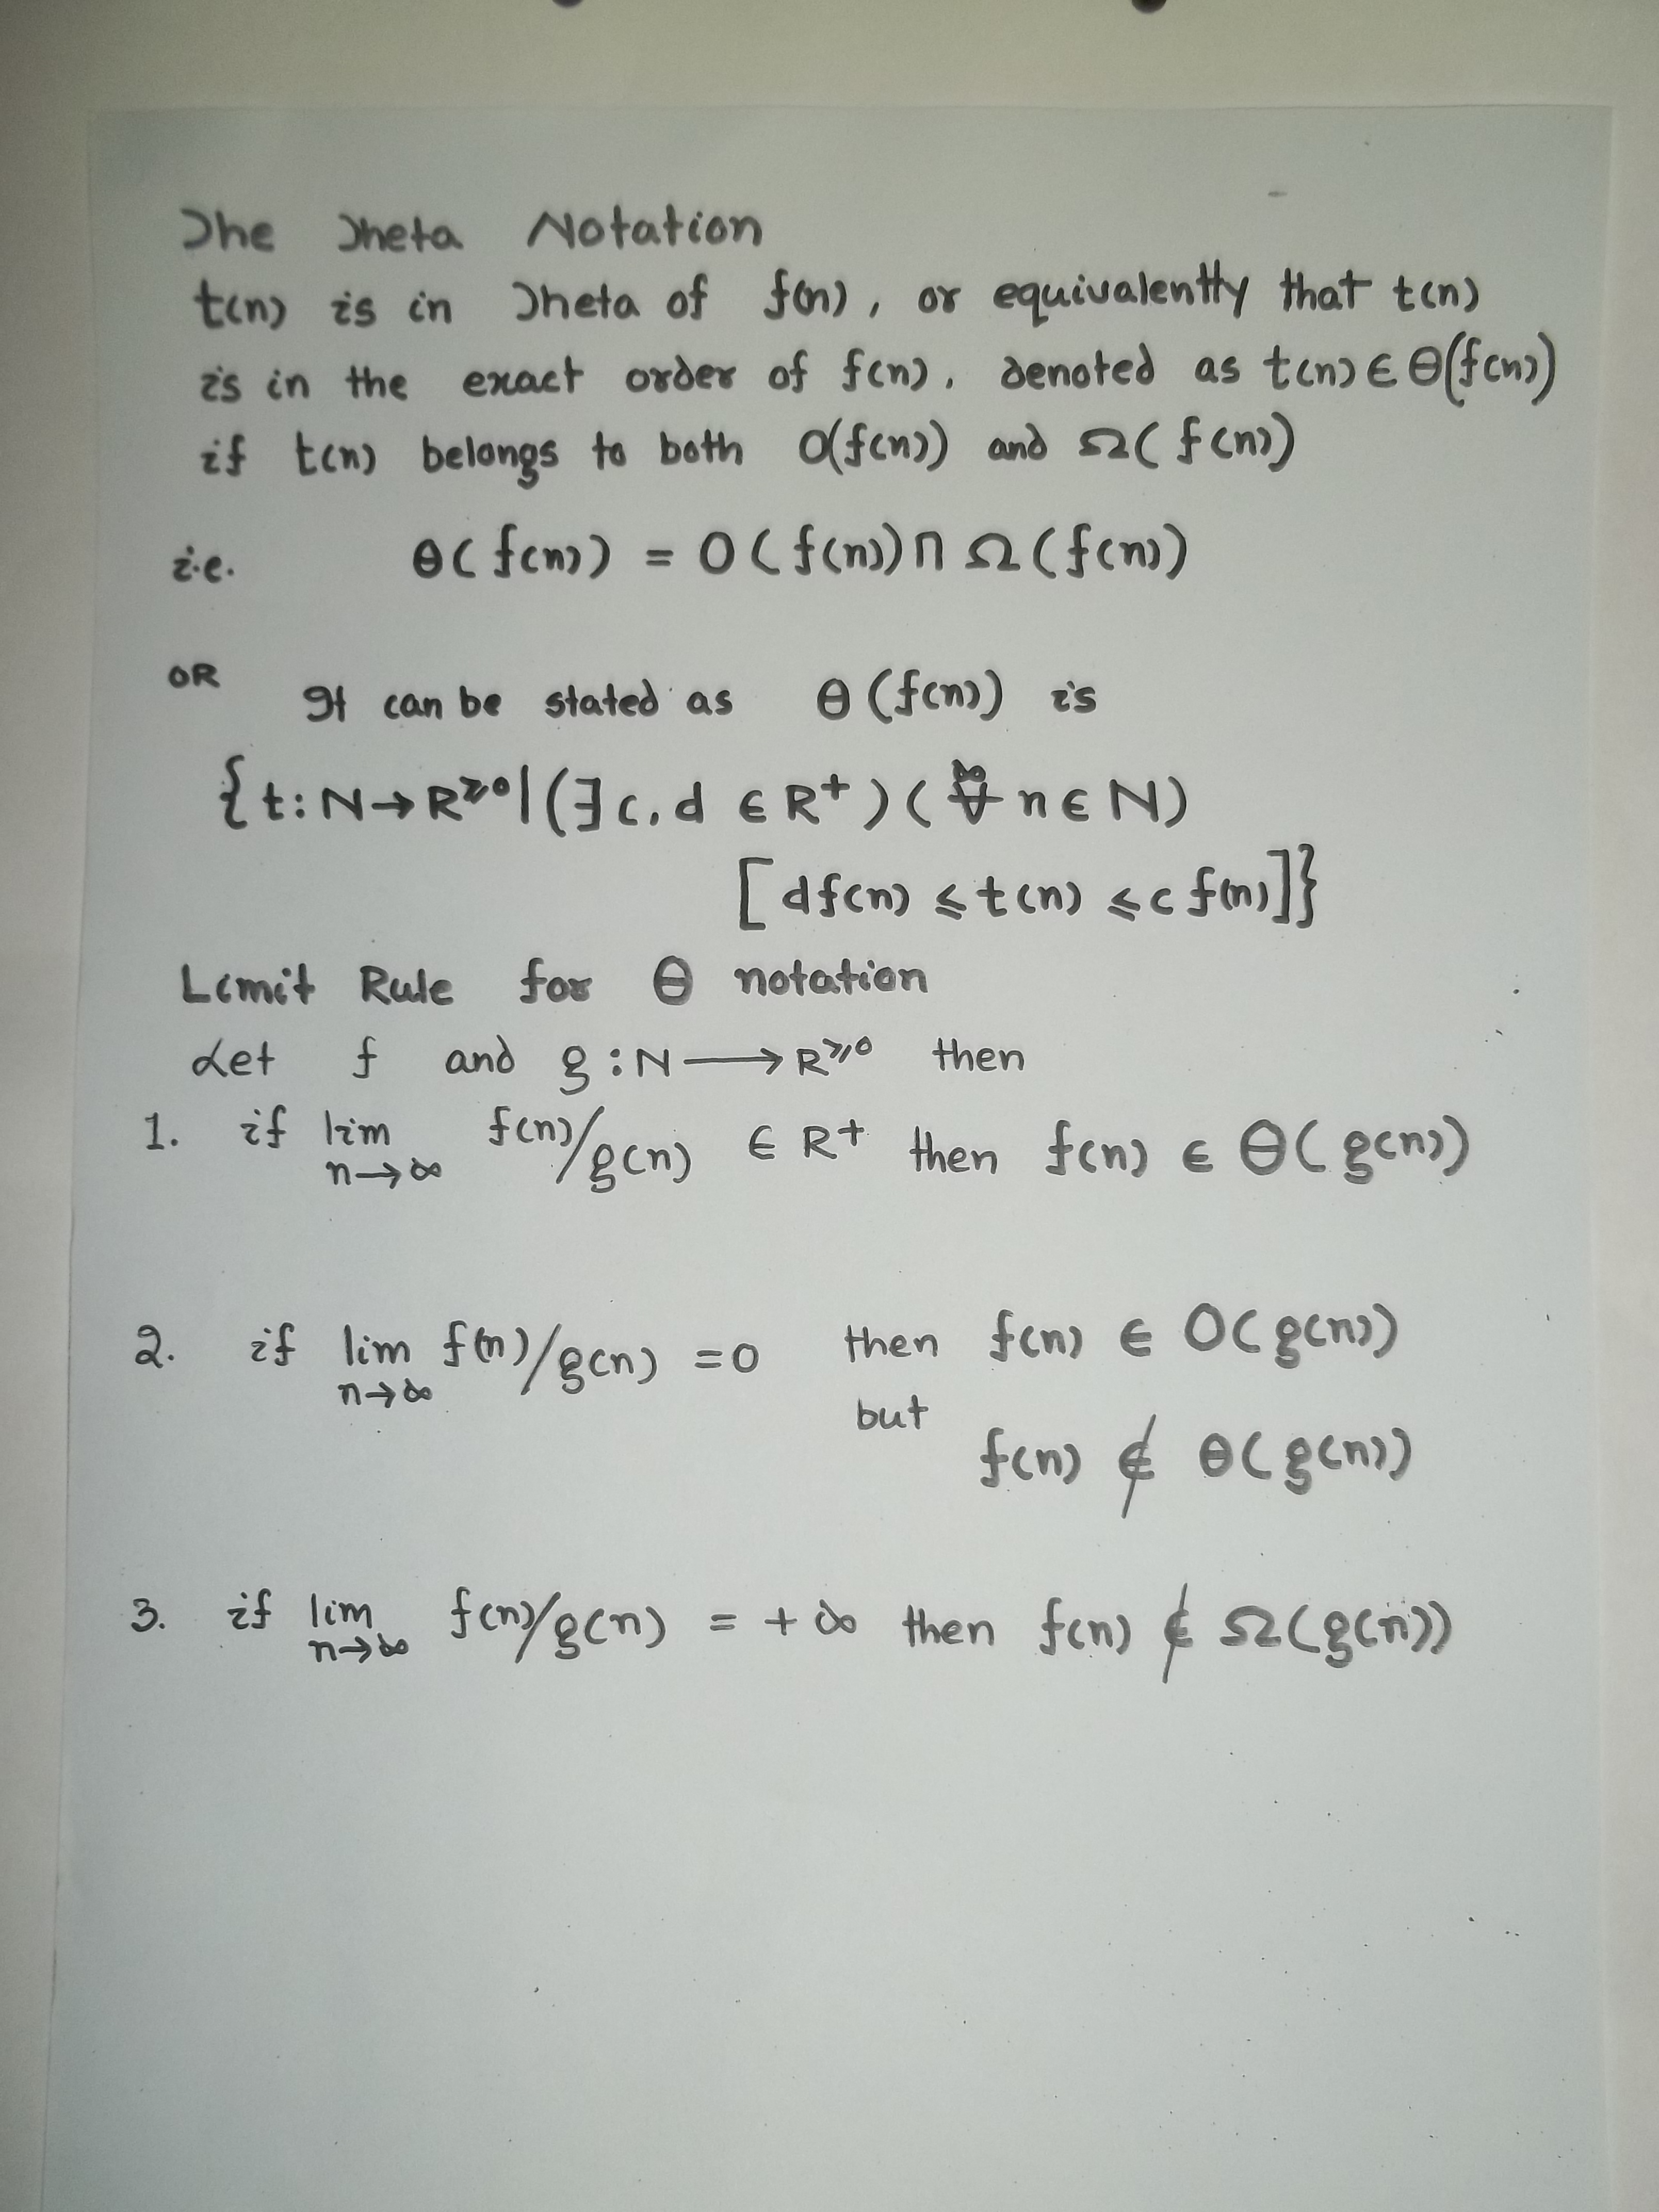 The Theta Notation
t(n) is in Theta of f(n), or equivalentty that t(n)
is in the exact order of f(n), denoted as t(n) ∈ Θ(f(n))
if t(n) belongs to both O(f(n)) and Ω(f(n))
i.e. θ(f(n)) = O(f(n)) ∩ Ω(f(n))
OR It can be stated as θ(f(n)) is
{t: N→R≥0|(∃c,d ∈ R+)(∞∀ n ∈ N)
[df(n) ≤ t(n) ≤ c f(n)]}
Limit Rule for Θ notation
Let f and g : N → R≥0 then
1. if lim n→∞ f(n)/g(n) ∈ R+ then f(n) ∈ Θ(g(n))
2. if lim n→∞ f(n)/g(n) = 0 then f(n) ∈ O(g(n))
but f(n) ∉ θ(g(n))
3. if lim n→∞ f(n)/g(n) = +∞ then f(n) ∉ Ω(g(n))